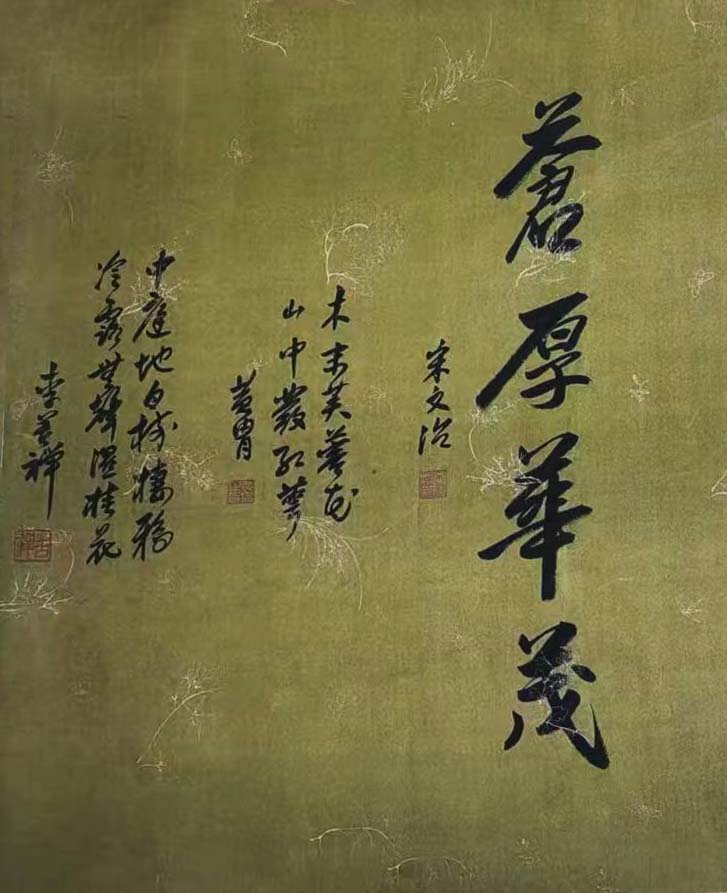 蒼厚華茂
宋文治
木末芙蓉花
山中發紅萼
黃胄
中庭地白樹棲鴉
冷露無聲溼桂花
李苦禪